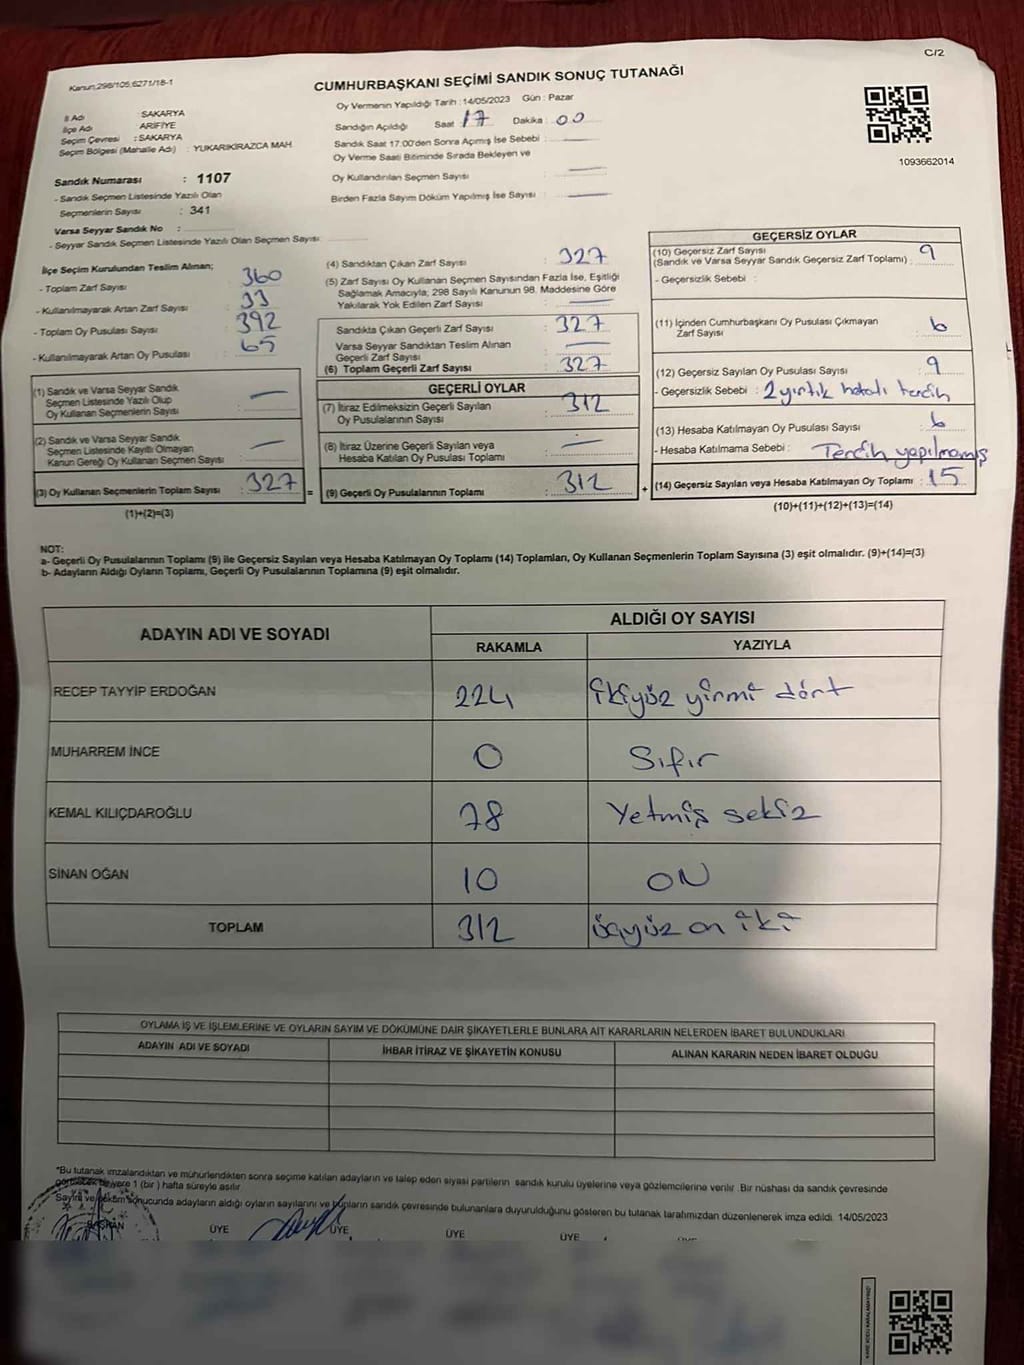 C/2
Kanun:298/105;6271/18-1
CUMHURBAŞKANI SEÇİMİ SANDIK SONUÇ TUTANAĞI
Oy Vermenin Yapıldığı Tarih :14/05/2023 Gün : Pazar
İl Adı SAKARYA
İlçe Adı ARİFİYE
Seçim Çevresi : SAKARYA
Seçim Bölgesi (Mahalle Adı) : YUKARIKİRAZCA MAH.
Sandığın Açıldığı Saat : 17 Dakika : 00
Sandık Saat 17:00'den Sonra Açımış İse Sebebi :
Oy Verme Saati Bitiminde Sırada Bekleyen ve
Oy Kullandırılan Seçmen Sayısı :
Birden Fazla Sayım Döküm Yapılmış İse Sayısı :
1093662014
Sandık Numarası : 1107
- Sandık Seçmen Listesinde Yazılı Olan
Seçmenlerin Sayısı : 341
Varsa Seyyar Sandık No :
- Seyyar Sandık Seçmen Listesinde Yazılı Olan Seçmen Sayısı:
İlçe Seçim Kurulundan Teslim Alınan;
- Toplam Zarf Sayısı : 360
- Kullanılmayarak Artan Zarf Sayısı : 33
- Toplam Oy Pusulası Sayısı : 392
- Kullanılmayarak Artan Oy Pusulası : 65
(1) Sandık ve Varsa Seyyar Sandık
Seçmen Listesinde Yazılı Olup
Oy Kullanan Seçmenlerin Sayısı :
(2) Sandık ve Varsa Seyyar Sandık
Seçmen Listesinde Kayıtlı Olmayan
Kanun Gereği Oy Kullanan Seçmen Sayısı :
(3) Oy Kullanan Seçmenlerin Toplam Sayısı : 327
(1)+(2)=(3)
(4) Sandıktan Çıkan Zarf Sayısı : 327
(5) Zarf Sayısı Oy Kullanan Seçmen Sayısından Fazla İse, Eşitliği
Sağlamak Amacıyla; 298 Sayılı Kanunun 98. Maddesine Göre
Yakılarak Yok Edilen Zarf Sayısı :
Sandıkta Çıkan Geçerli Zarf Sayısı : 327
Varsa Seyyar Sandıktan Teslim Alınan
Geçerli Zarf Sayısı :
(6) Toplam Geçerli Zarf Sayısı : 327
GEÇERLİ OYLAR
(7) İtiraz Edilmeksizin Geçerli Sayılan
Oy Pusulalarının Sayısı : 312
(8) İtiraz Üzerine Geçerli Sayılan veya
Hesaba Katılan Oy Pusulası Toplamı :
= (9) Geçerli Oy Pusulalarının Toplamı : 312
GEÇERSİZ OYLAR
(10) Geçersiz Zarf Sayısı
(Sandık ve Varsa Seyyar Sandık Geçersiz Zarf Toplamı) : 9
- Geçersizlik Sebebi :
(11) İçinden Cumhurbaşkanı Oy Pusulası Çıkmayan
Zarf Sayısı : 6
(12) Geçersiz Sayılan Oy Pusulası Sayısı : 9
- Geçersizlik Sebebi : 2 yırtık hatalı tercih
(13) Hesaba Katılmayan Oy Pusulası Sayısı : 6
- Hesaba Katılmama Sebebi : Tercih yapılmamış
+ (14) Geçersiz Sayılan veya Hesaba Katılmayan Oy Toplamı : 15
(10)+(11)+(12)+(13)=(14)
NOT:
a- Geçerli Oy Pusulalarının Toplamı (9) ile Geçersiz Sayılan veya Hesaba Katılmayan Oy Toplamı (14) Toplamları, Oy Kullanan Seçmenlerin Toplam Sayısına (3) eşit olmalıdır. (9)+(14)=(3)
b- Adayların Aldığı Oyların Toplamı, Geçerli Oy Pusulalarının Toplamına (9) eşit olmalıdır.
ADAYIN ADI VE SOYADI ALDIĞI OY SAYISI
RAKAMLA YAZIYLA
RECEP TAYYİP ERDOĞAN 224 ikiyüz yirmi dört
MUHARREM İNCE 0 Sıfır
KEMAL KILIÇDAROĞLU 78 Yetmiş sekiz
SİNAN OĞAN 10 ON
TOPLAM 312 üçyüz on iki
OYLAMA İŞ VE İŞLEMLERİNE VE OYLARIN SAYIM VE DÖKÜMÜNE DAİR ŞİKAYETLERLE BUNLARA AİT KARARLARIN NELERDEN İBARET BULUNDUKLARI
ADAYIN ADI VE SOYADI İHBAR İTİRAZ VE ŞİKAYETİN KONUSU ALINAN KARARIN NEDEN İBARET OLDUĞU
*Bu tutanak imzalandıktan ve mühürlendikten sonra seçime katılan adayların ve talep eden siyasi partilerin sandık kurulu üyelerine veya gözlemcilerine verilir .Bir nüshası da sandık çevresinde
yere 1 (bir ) hafta süreyle asılır.
Sayım ve döküm sonucunda adayların aldığı oyların sayılarını ve bunların sandık çevresinde bulunanlara duyurulduğunu gösteren bu tutanak tarafımızdan düzenlenerek imza edildi. 14/05/2023
BAŞKAN ÜYE ÜYE ÜYE ÜYE